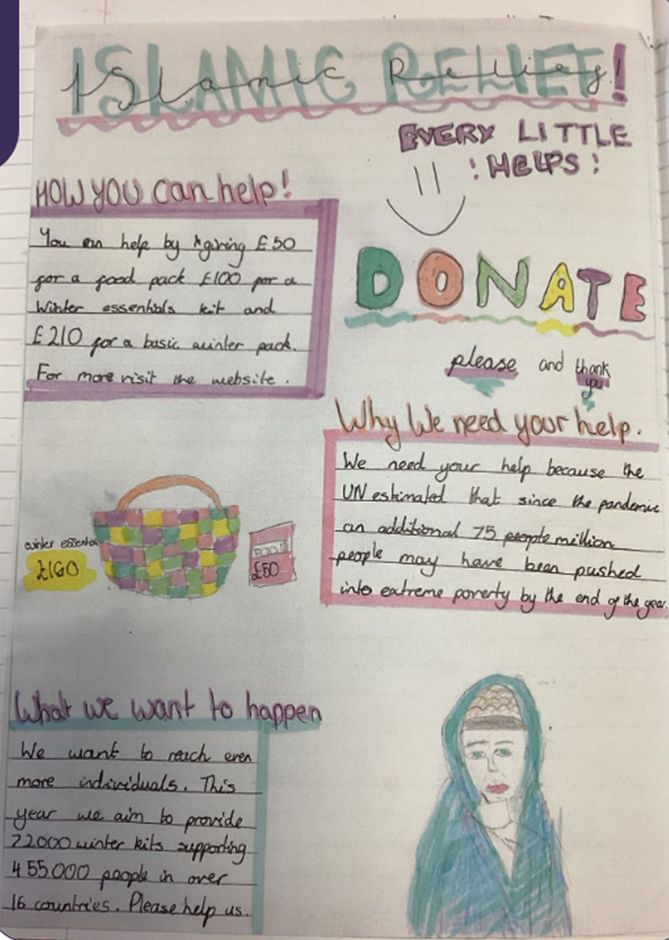 ISLAMIC RELIEF!
Islamic Relief!
EVERY LITTLE
! HELPS !
HOW YOU can help!
You can help by giving £50
for a food pack £100 for a
Winter essentials kit and
£210 for a basic winter pack.
For more visit the website.
DONATE
please and thank
you
Why We need your help.
We need your help because the
UN estimated that since the pandemic
an additional 75 people million
people may have been pushed
into extreme poverty by the end of the year.
winter essential
FOOD
£50
What we want to happen
We want to reach even
more individuals. This
year we aim to provide
winter kits supporting
455000 people in over
16 countries. Please help us.